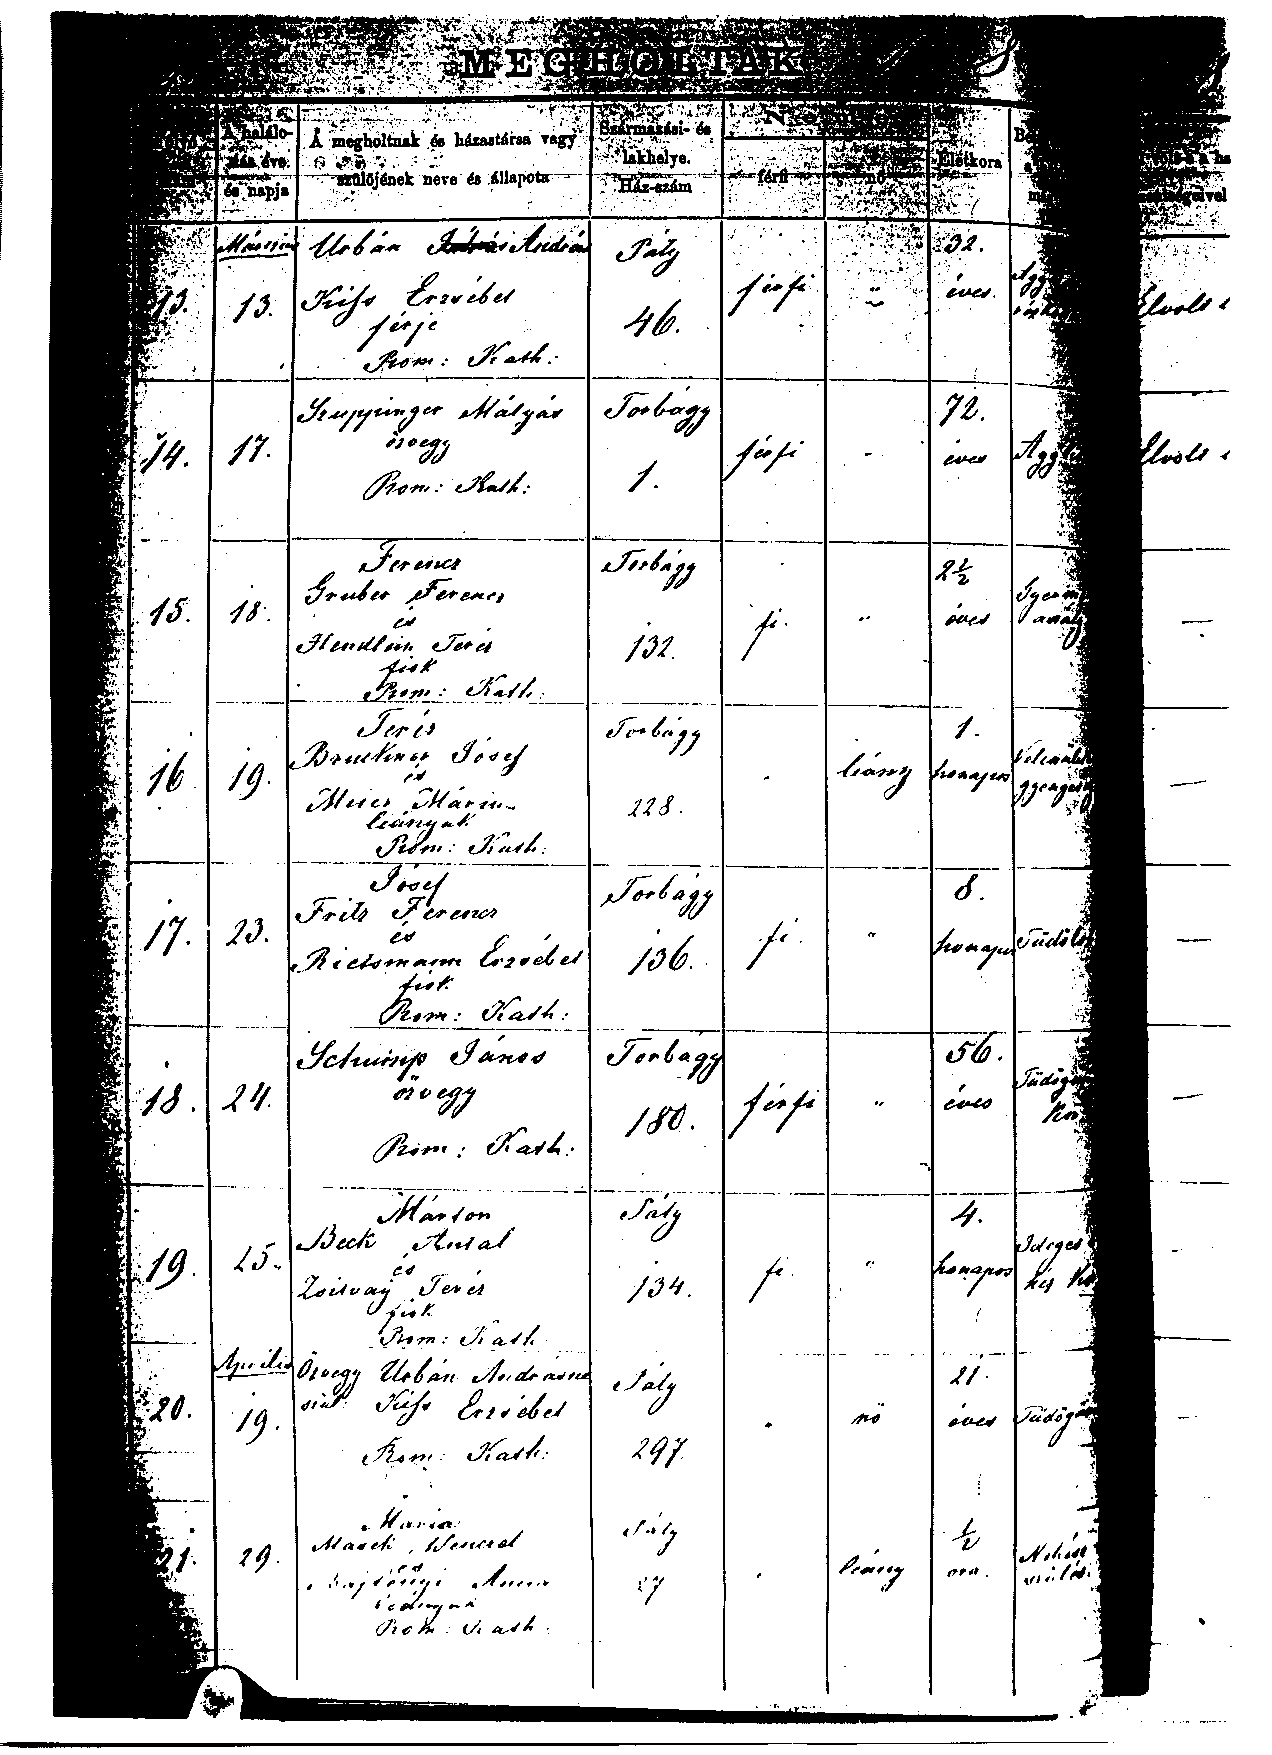 MEGHOLTAK
A halálo-
zás éve
és napja
A megholtnak és házastársa vagy
szülőjének neve és állapota
Származási- és
lakhelye.
Ház-szám
férfi
nő
Életkora
Márczius
13.
13.
Urbán András
Kiss Erzsébet
férje
Rom: Kath:
Páty
46.
férfi
"
32.
éves
Elvolt
14.
17.
Szuppinger Mátyás
özvegy
Rom: Kath:
Torbágy
1.
férfi
"
72.
éves
Agg
Elvolt
15.
18.
Ferencz
Gruber Ferencz
és
Hendlein Teréz
fiok
Rom: Kath:
Torbágy
132.
fi.
"
2 1/2
éves
—
16
19.
Teréz
Bruckner József
és
Meier Mária
leányuk
Rom: Kath:
Torbágy
228.
leány
1.
honapos
gyengeség
—
17.
23.
József
Fritz Ferencz
és
Rietzmann Erzsébet
fiok
Rom: Kath:
Torbágy
136.
fi.
"
8.
honapos
—
18.
24.
Schimp János
özvegy
Rom: Kath:
Torbágy
180.
férfi
"
56.
éves
—
19.
25.
Márton
Beck Antal
és
Zsitvay Teréz
fiok
Rom: Kath
Páty
134.
fi.
"
4.
honapos
Ideges
—
Április
20.
19.
Özvegy Urbán Andrásné
szül: Kiss Erzsébet
Rom: Kath:
Páty
297.
nő
21.
éves
—
21.
29.
Maria
Wenczel
és
Anna
leányuk
Rom: Kath:
Páty
27
leány
1/2
ora.
Nehéz
szülés